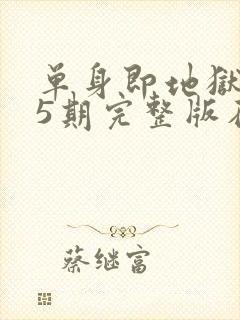 单身即地狱
5期完整版在
蔡继富